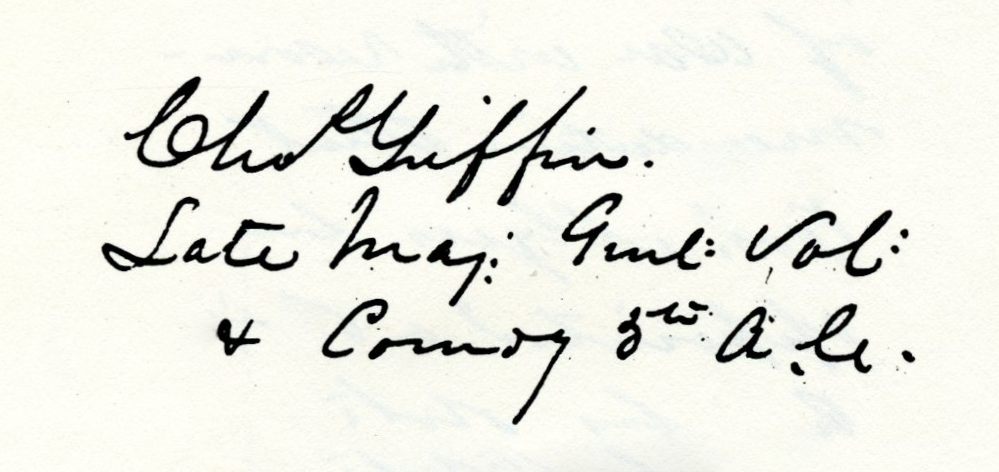 Chas Griffin.
Late Maj: Genl: Vol:
& Comdg 5th A.C.